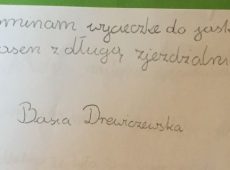 ominam wycieczkę do jask
asen z długą zjeżdżalni
Basia Drewiczewska